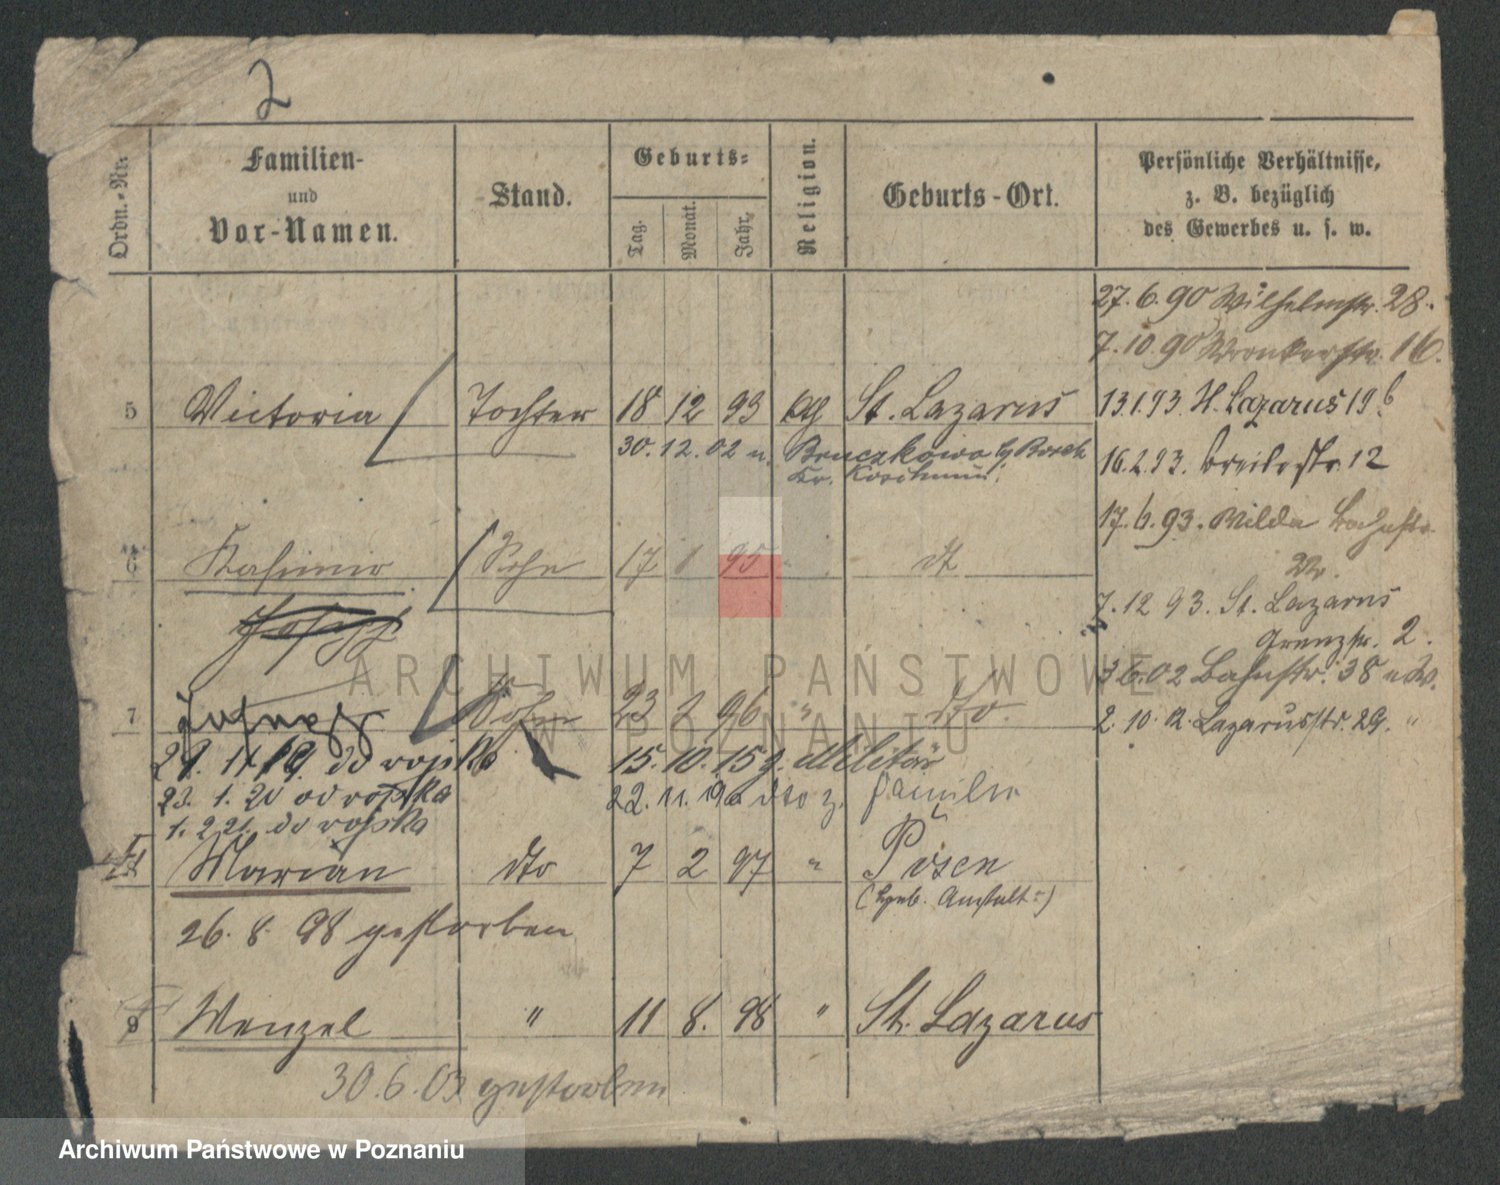 2
Ordn.-Nr.
Familien-
und
Vor-Namen.
Stand.
Geburts-
Tag.
Monat.
Jahr.
Religion.
Geburts-Ort.
Persönliche Verhältnisse,
z. B. bezüglich
des Gewerbes u. s. w.
27.6.90 Wilhelmstr. 28.
7.10.90 Wronkerstr. 16.
5 Victoria Tochter 18 12 93 St. Lazarus
13.1.93. St. Lazarus 19
30.12.02 n. Bruczkowo b/ Borek
Kr. Koschmin
16.2.93. Breitestr. 12
17.6.93. Wilda Bachstr.
6 Kasimir Sohn 17 1 95 " dt
7.12 93. St. Lazarus
Grenzstr. 2.
3.6.02 Bahnstr. 38
7 Sohn 23 2 96 " dto.
2.10.12. Lazarusstr. 29. "
21. 11 19. do wojska 15.10.15 z. Militär
23. 1. 20 od wojska 22.11.19 dto z. Familie
1. 2 21. do wojska
Marian dto 7 2 97 " Posen
(Geb. Anstalt)
26. 8. 98 gestorben
9 Wenzel " 11 8. 98 " St. Lazarus
30.6.03 gestorben
ARCHIWUM PAŃSTWOWE
W POZNANIU
Archiwum Państwowe w Poznaniu